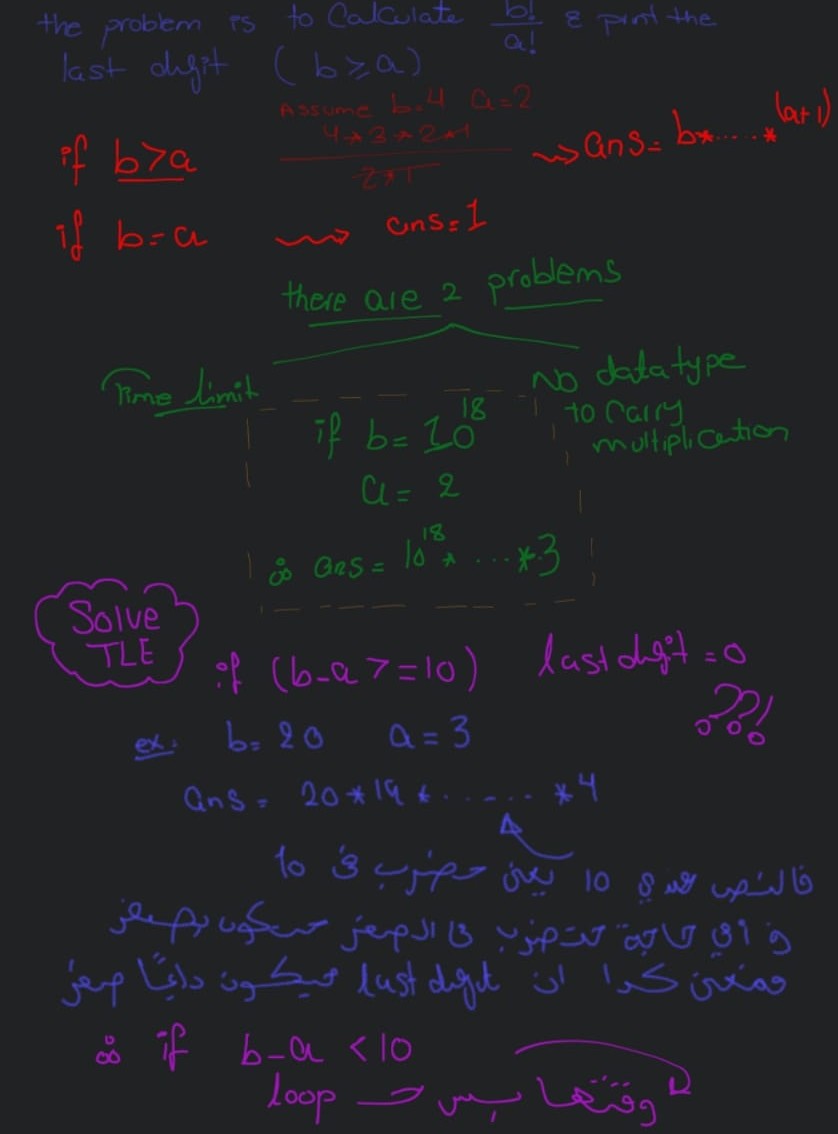 the problem is to Calculate b!/a! & print the
last digit ( b ≥ a )
Assume b=4 a=2
if b>a 4*3*2*1 / 2*1 ⇝ ans= b*.....*(a+1)
if b=a ⇝ ans=1
there are 2 problems
Time limit
No datatype
to carry
multiplication
if b= 10^18
a= 2
∴ ans= 10^18 * ... *3
Solve
TLE
if (b-a >=10) last digit =0
???
ex: b= 20 a=3
ans= 20*19*......*4
فالنص عندي 10 يعني حضرب في 10
و أي حاجة تتضرب في الصفر حتكون بصفر
فمعنى كدا ان last digit حيكون دايمًا صفر
∴ if b-a <10
وقتها بس → loop